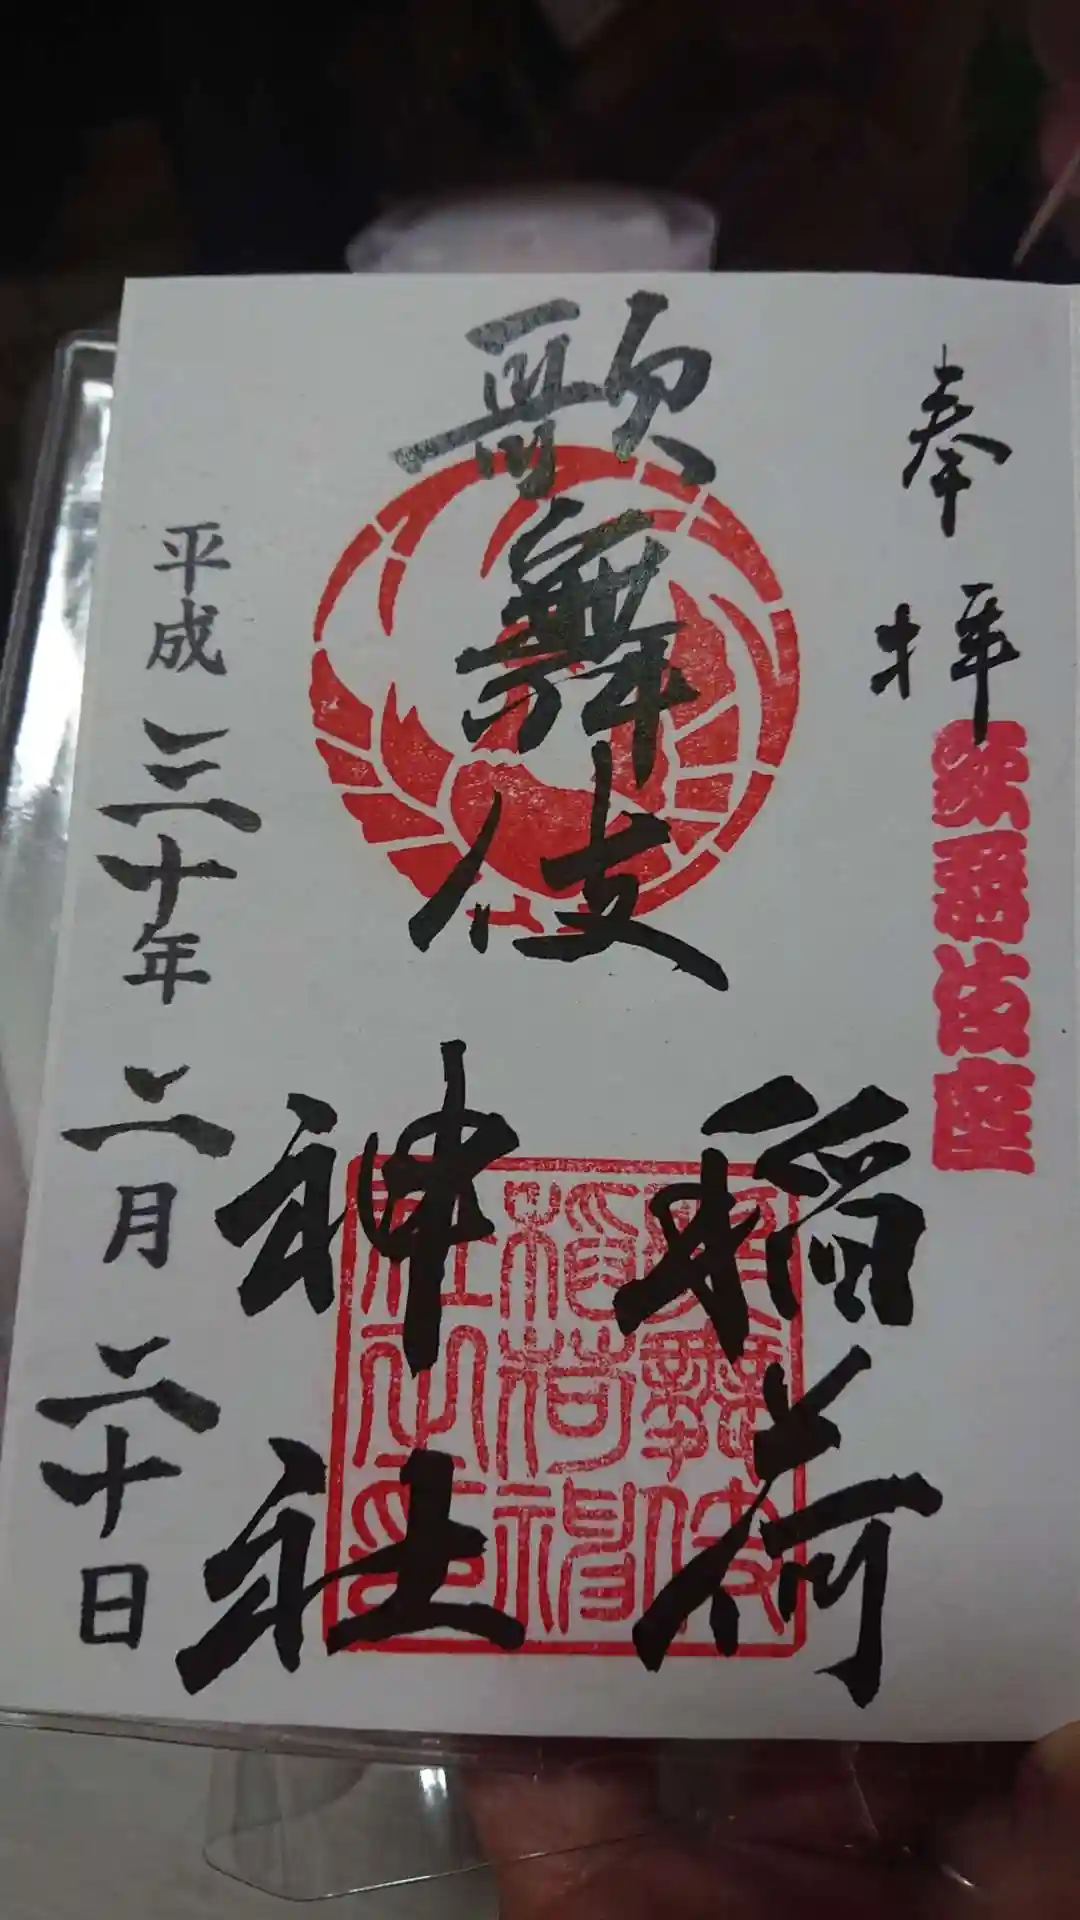 奉拝
歌舞伎座
歌舞伎
稲荷
神社
歌舞伎
稲荷神
社之印
平成三十年二月二十日